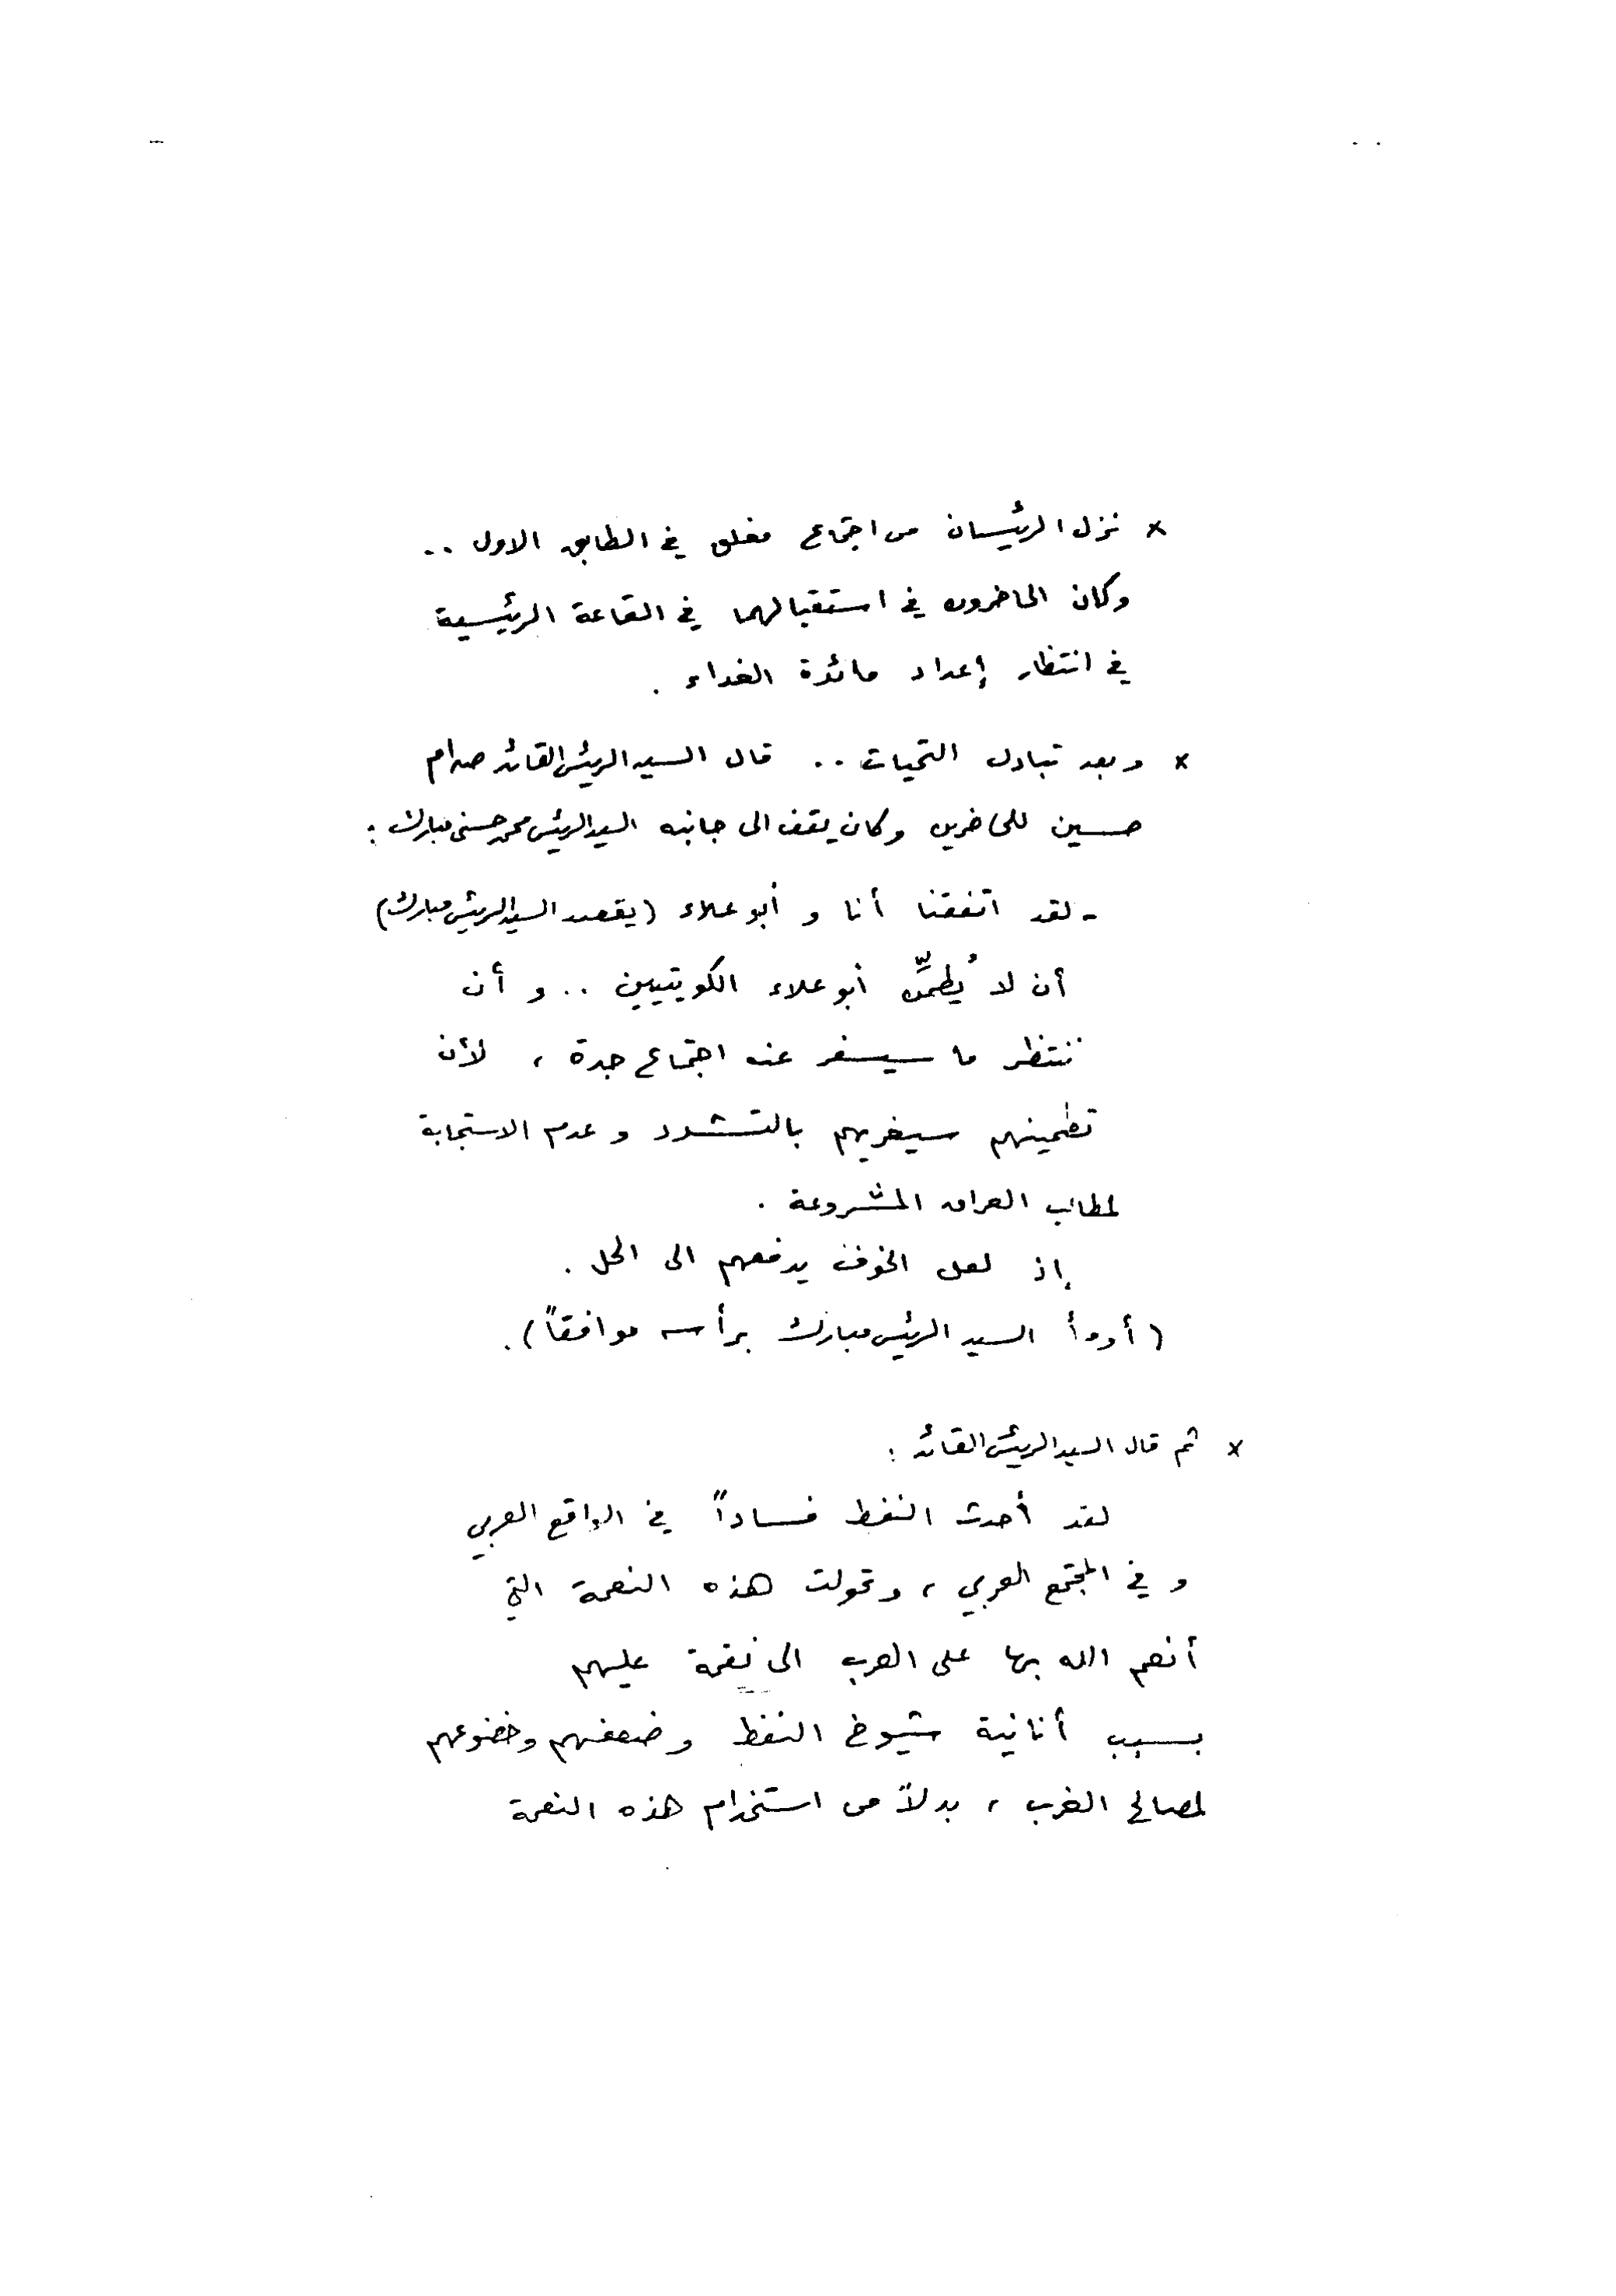 × نزل الرئيسان من اجتماع مغلق في الطابق الاول ..
وكان الحاضرون في استقبالهما في القاعة الرئيسية
في انتظار إعداد مائدة الغداء .
× وبعد تبادل التحيات .. قال السيد الرئيس القائد صدام
حسين للحاضرين وكان يقف الى جانبه السيد الرئيس محمد حسني مبارك :
- لقد اتفقنا أنا و أبو علاء (يقصد السيد الرئيس مبارك)
أن لا يُطمئِّن أبو علاء الكويتيين .. و أن
ننتظر ما سيسفر عنه اجتماع جدة ، لأن
تطمينهم سيغريهم بالتشدد و عدم الاستجابة
لمطالب العراق المشروعة .
إذ لعل الخوف يدفعهم الى الحل .
( أومأ السيد الرئيس مبارك برأسه موافقاً ) .
× ثم قال السيد الرئيس القائد :
لقد أحدث النفط فساداً في الواقع العربي
و في المجتمع العربي ، وتحولت هذه النعمة التي
أنعم الله بها على العرب الى نقمة عليهم
بسبب أنانية شيوخ النفط وضعفهم وخضوعهم
لمصالح الغرب ، بدلاً من استخدام هذه النعمة